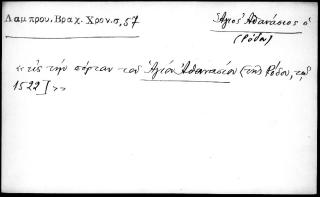 Λαμπρου. Βραχ. Χρον. σ, 57
Ἅγιος Ἀθανάσιος ὁ
(Ρόδου)
«εἰς τὴν πόρταν τοῦ Ἁγίου Ἀθανασίου (τῆς Ρόδου, τῷ
1522]»